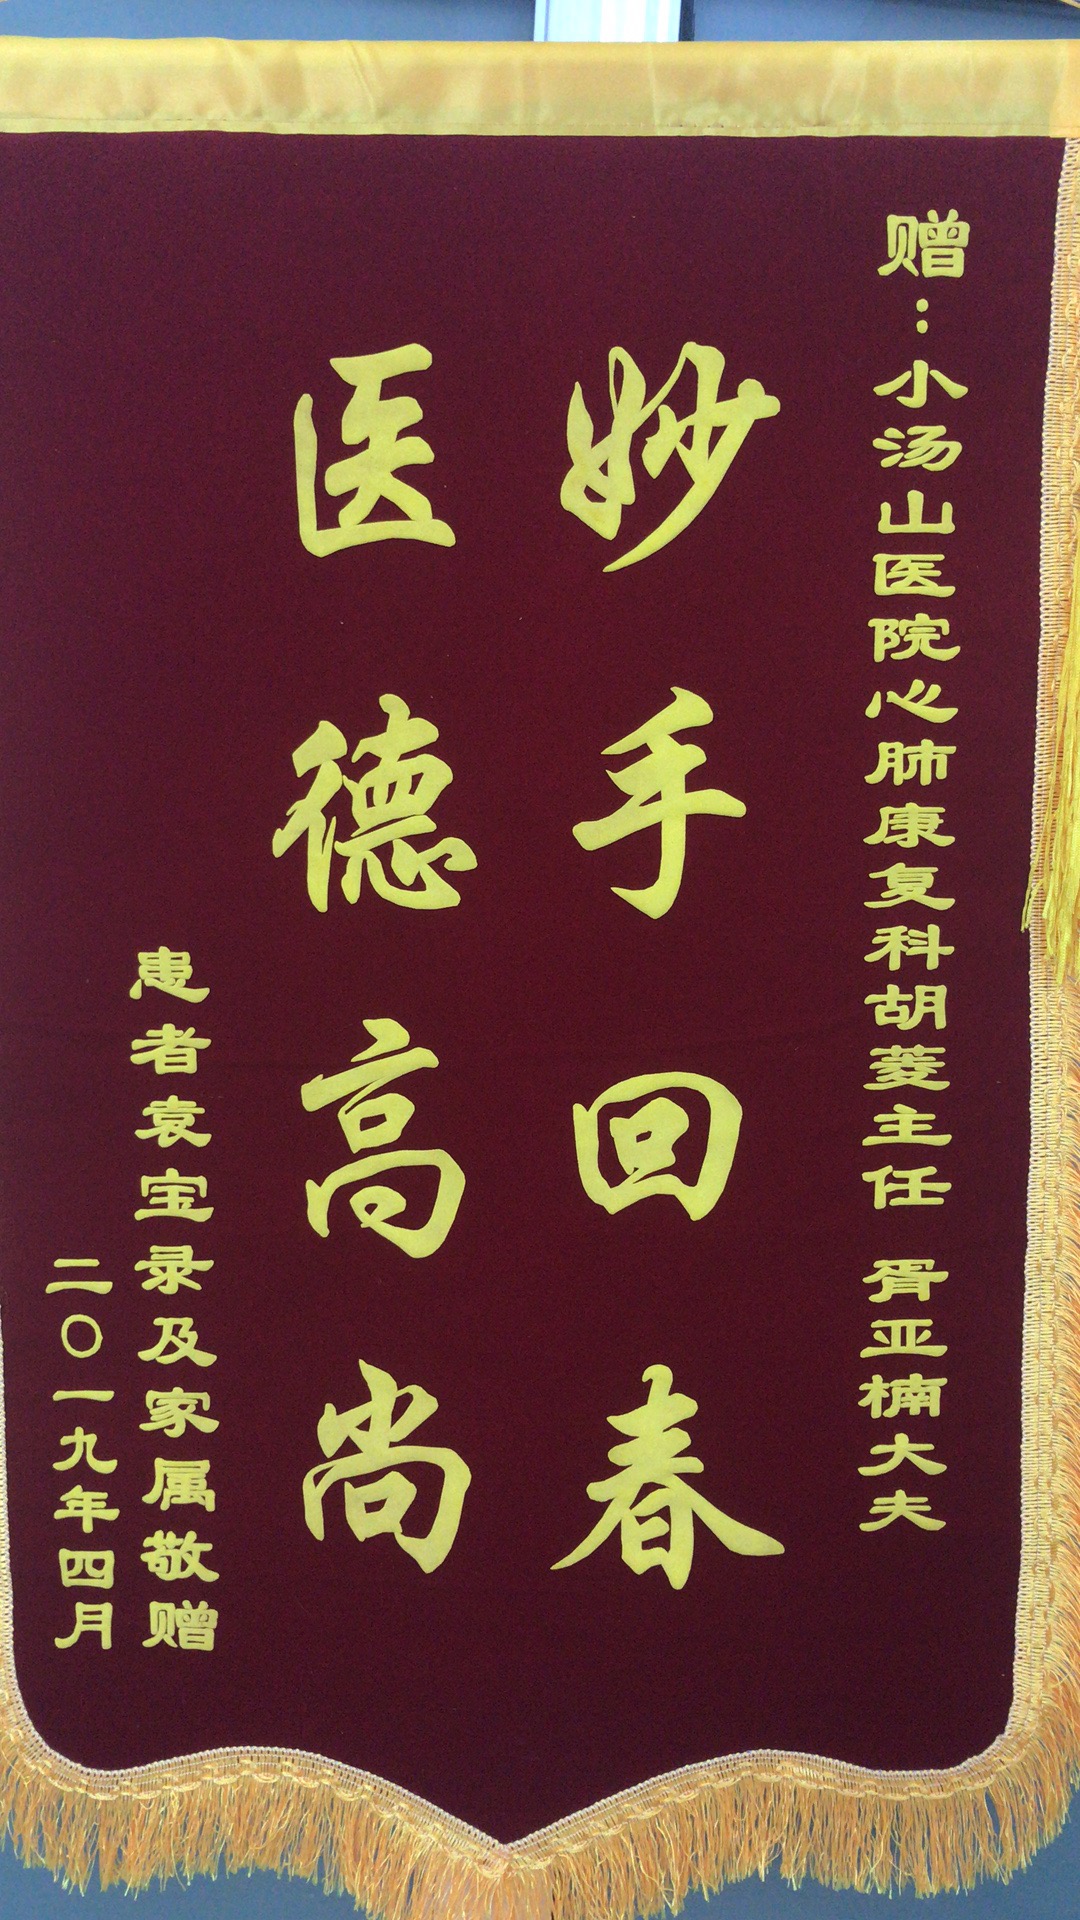 赠：小汤山医院心肺康复科胡菱主任 胥亚楠大夫
妙手回春
医德高尚
患者袁宝录及家属敬赠
二〇一九年四月